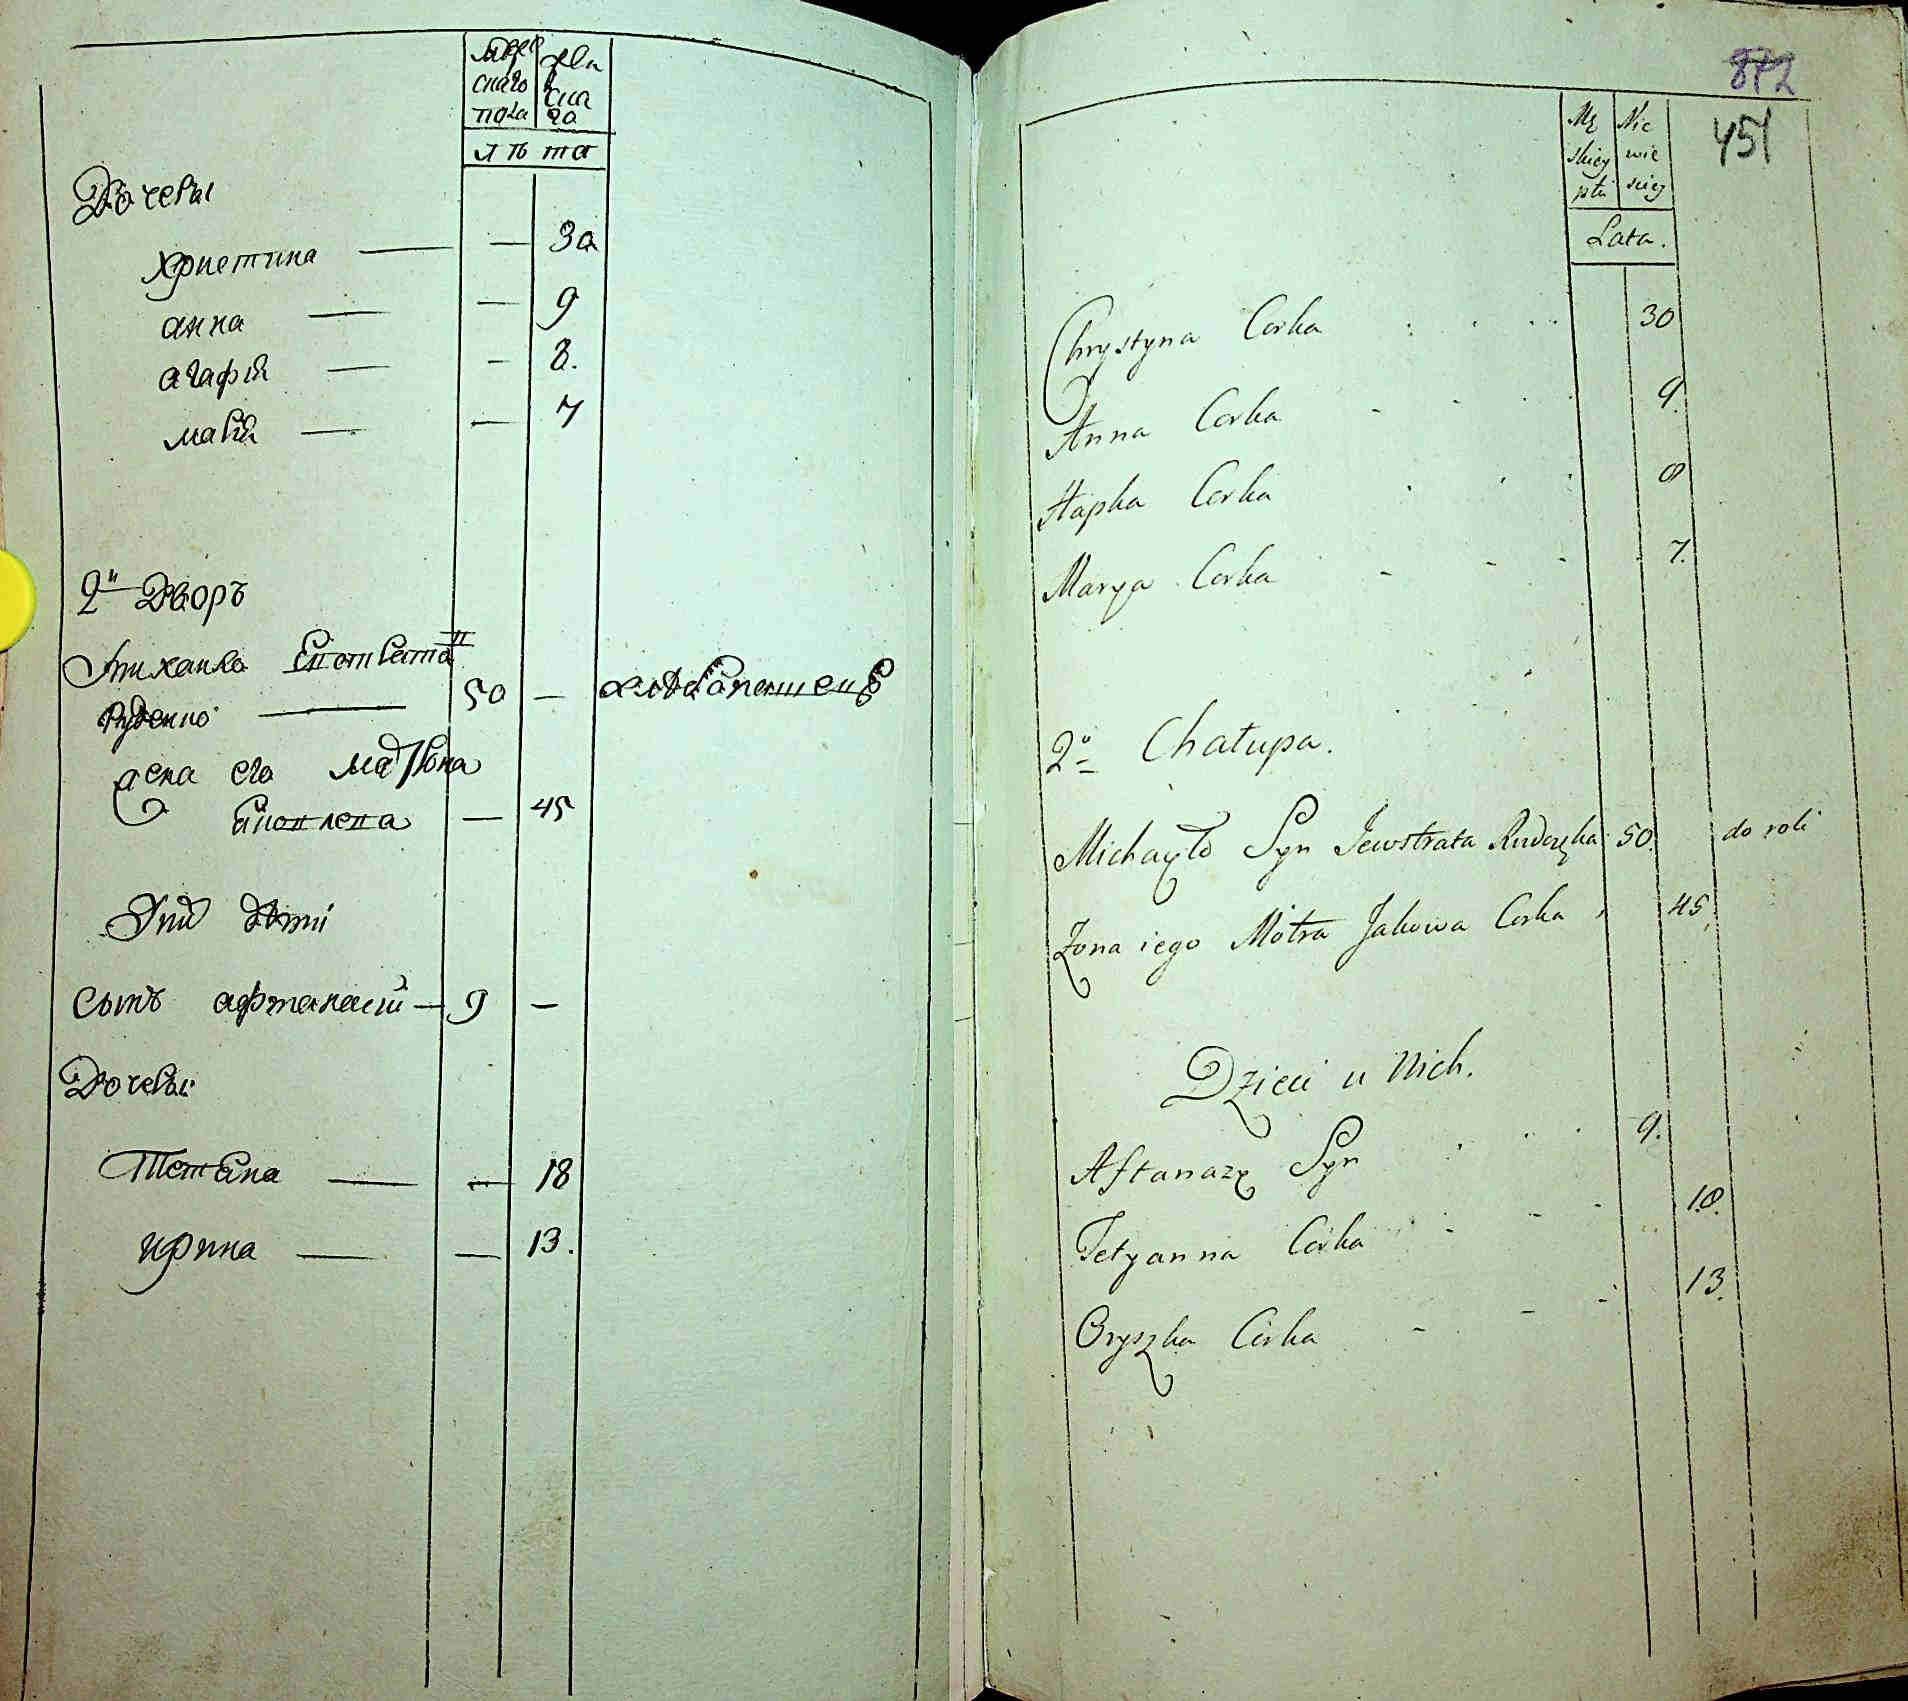 муже
скаго
пола
жен
ска
го
лѣта
Дочери
христина — — 30
анна — — 9
агафiя — — 8.
марiя — — 7
2й Дворъ
Михайло Евстратов
Руденко — 50 — хлебопашецъ
жена его матрона
— 45
Ихъ дѣти
Сынъ афтанасiй — 9 —
Дочери
Тетяна — — 18
ирина — — 13.
872
451
Mę
skiey
płci
Nie
wie
sciey
Lata.
Chrystyna Corka 30
Anna Corka 9.
Hapka Corka 8
Marya Corka 7.
2a Chałupa.
Michayło Syn Jewstrata Rudenka 50. do roli
Zona iego Motra Jakowa Corka 45
Dzieci u Nich.
Aftanazy Syn 9.
Tetyanna Corka 18.
Oryszka Corka 13.